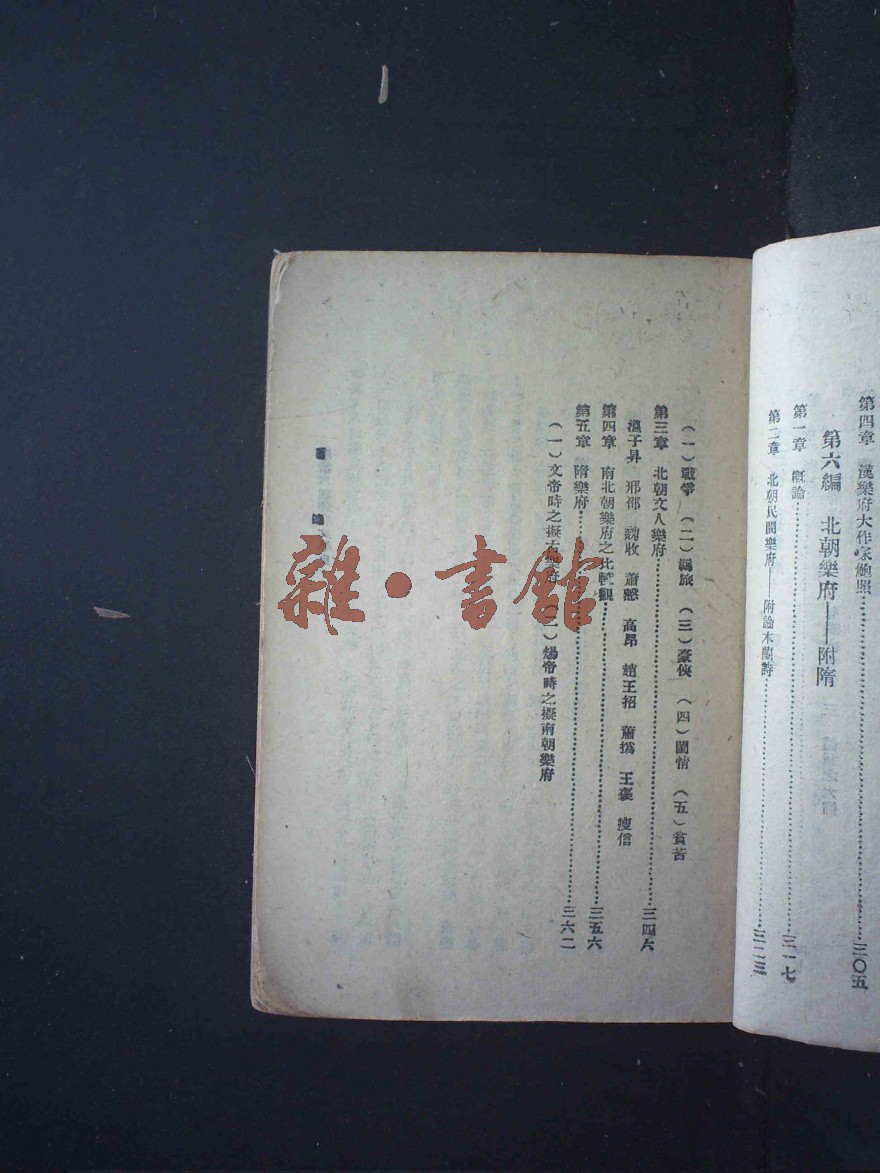 第四章 漢樂府大作家鮑照……三〇五
第六編 北朝樂府——附隋
第一章 概論……三一七
第二章 北朝民間樂府——附論木蘭詩……三二三
(一)戰爭 (二)羈旅 (三)豪俠 (四)閨情 (五)貧苦
第三章 北朝文人樂府……三四六
溫子昇 邢邵 魏收 蕭愨 高昂 趙王招 蕭撝 王褒 庾信
第四章 南北朝樂府之比較觀……三五六
第五章 隋樂府……三六二
(一)文帝時之擬古樂府 (二)煬帝時之擬南朝樂府
雜·書館